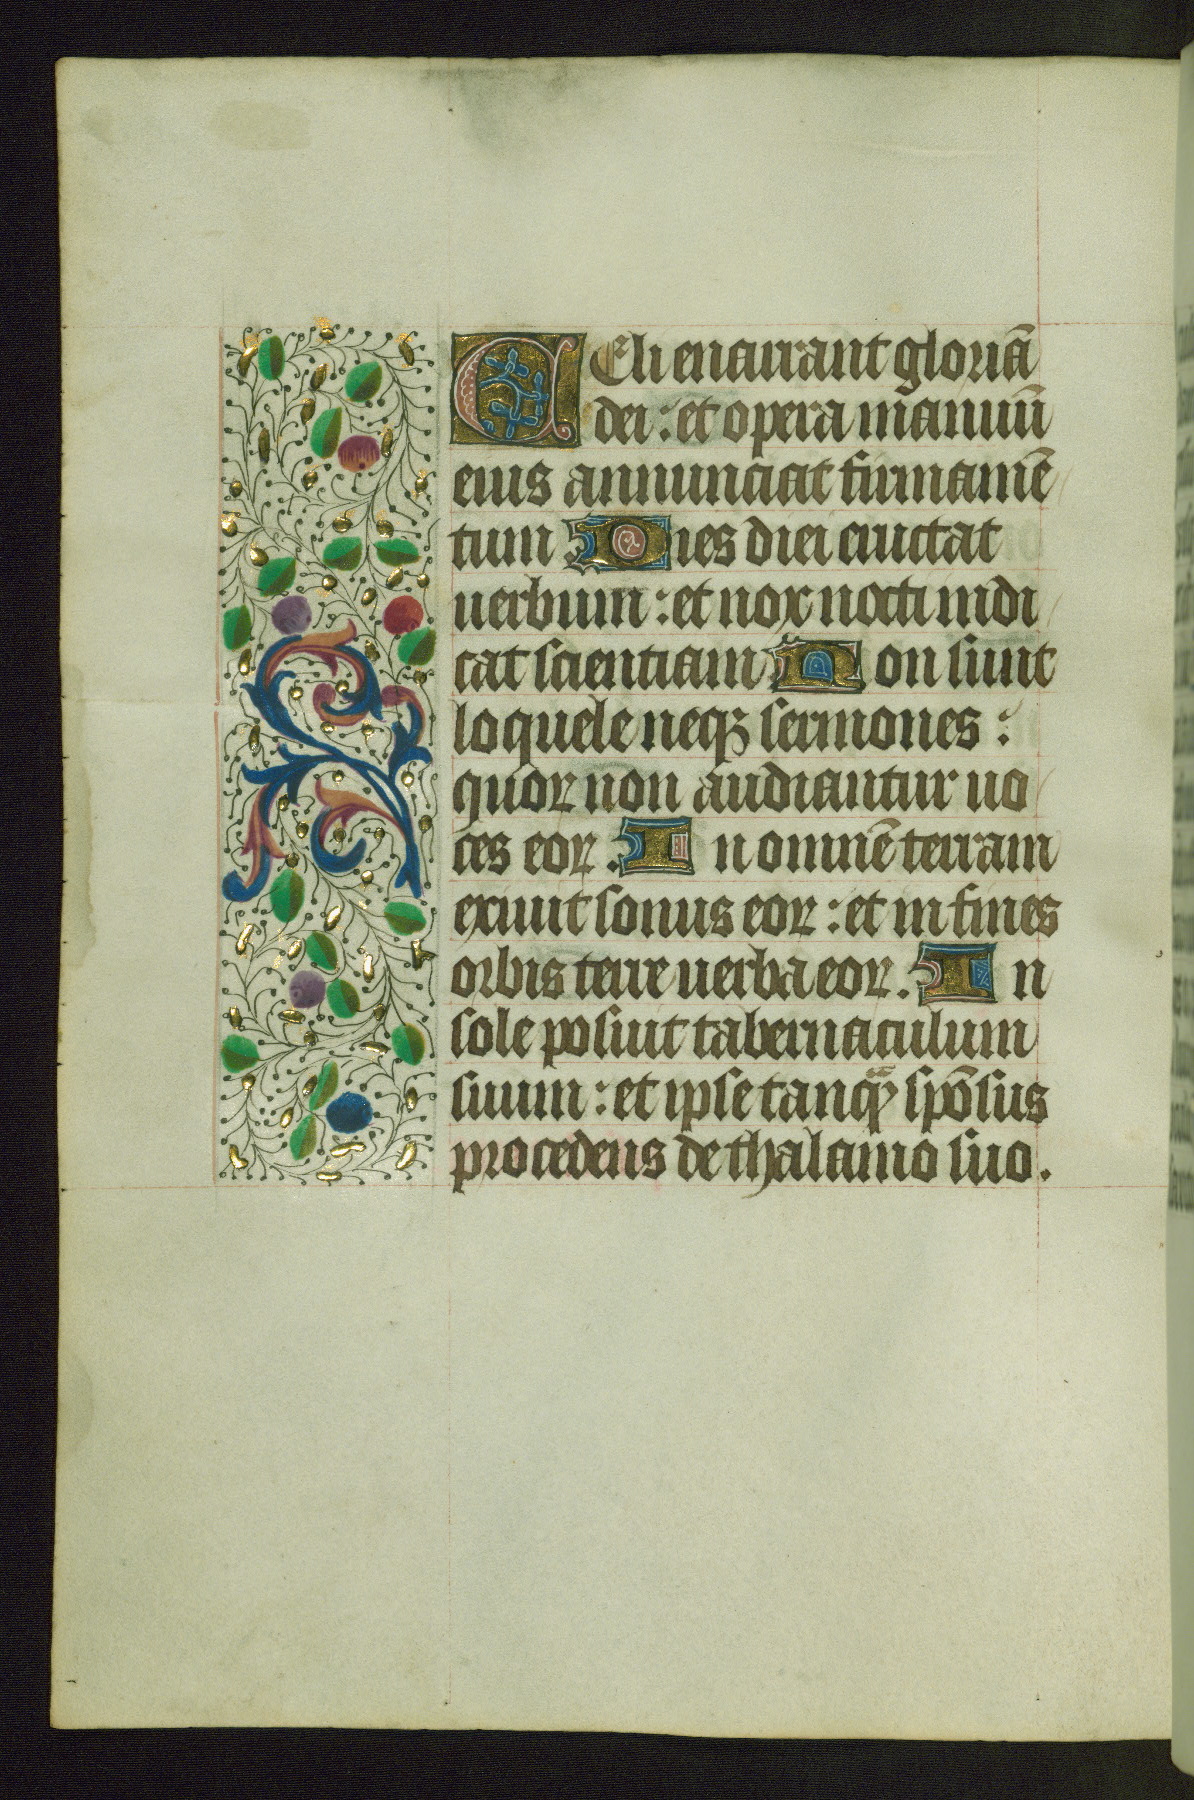 CEli enarrant gloriā
dei : et opera manuū
eius annunciat firmamē
tum Dies diei eructat
uerbum : et nox nocti indi
cat scientiam Non sunt
loquele neqꝫ sermones :
quoꝝ non audiantur uo
ces eoꝝ . In omnē terram
exiuit sonus eoꝝ : et in fines
orbis terre uerba eoꝝ . In
sole posuit tabernaculum
suum : et ipse tanqᷓ spōsus
procedens de thalamo suo .